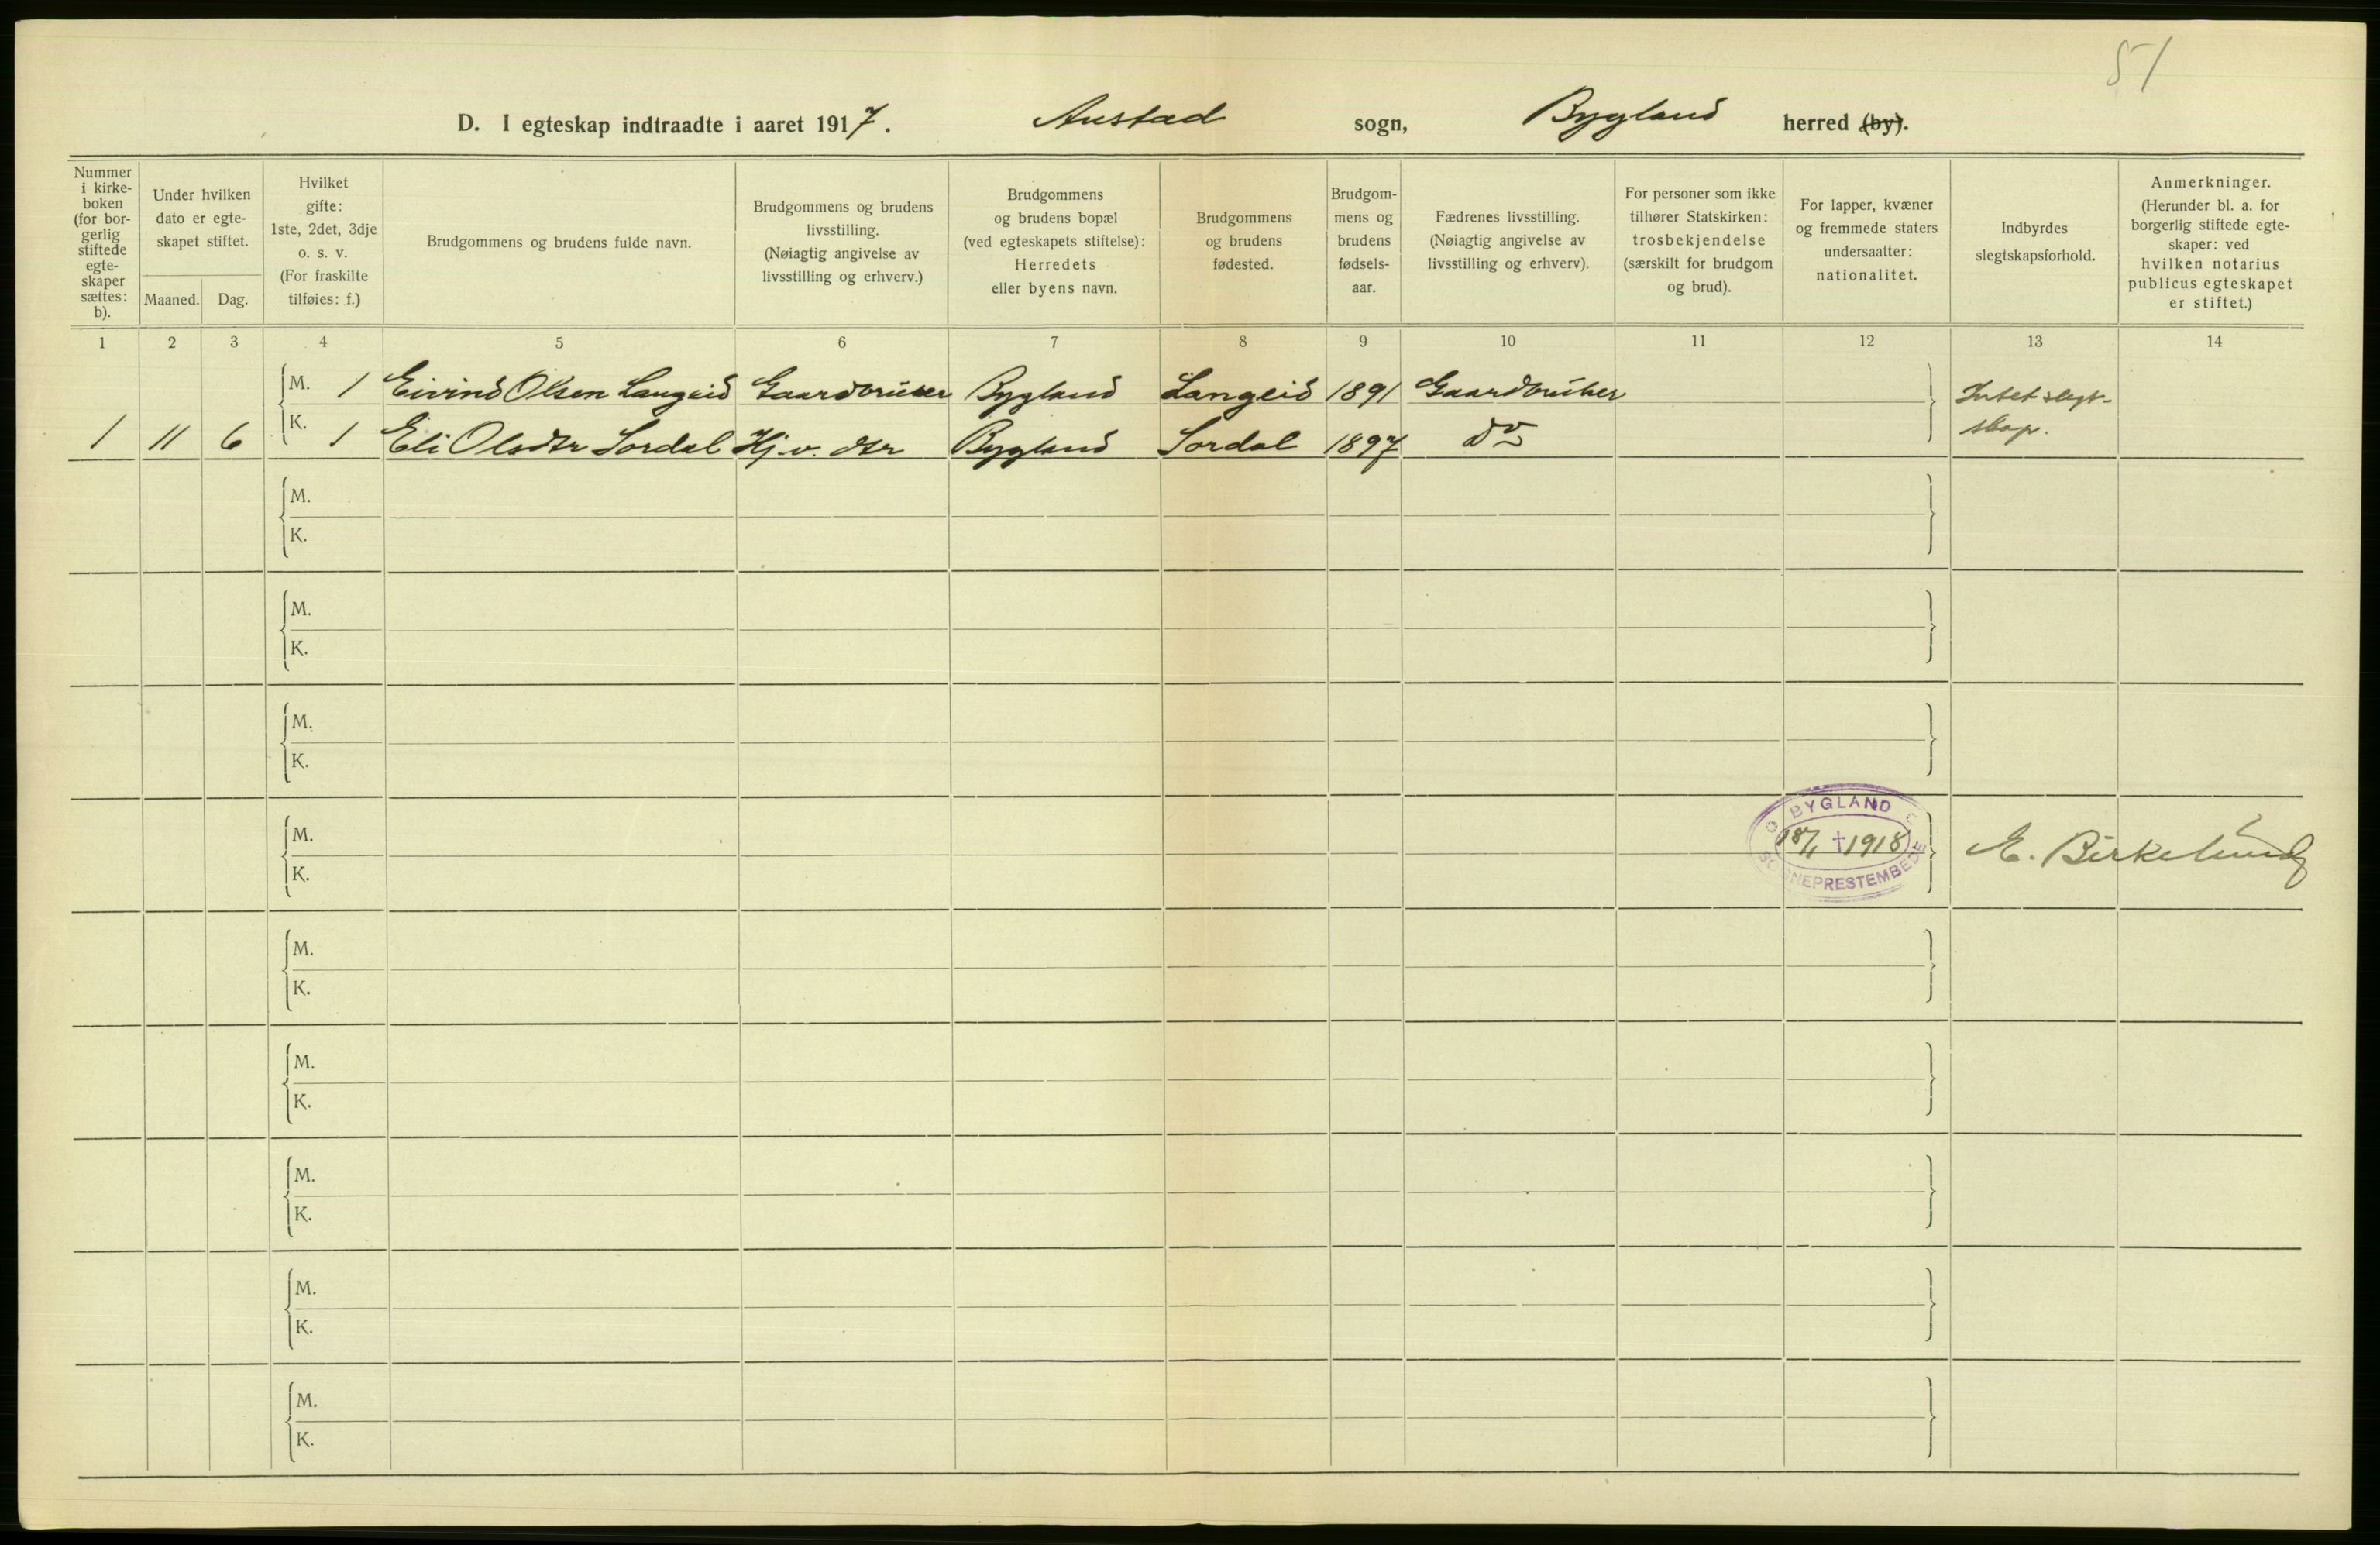 51
D. I egteskap indtraadte i aaret 1917. Austad sogn, Bygland herred (by).
Nummer i kirke-boken (for bor-gerlig stiftede egte-skaper sættes: b).
Under hvilken dato er egte-skapet stiftet.
Maaned. Dag.
Hvilket gifte: 1ste, 2det, 3dje o. s. v. (For fraskilte tilføies: f.)
Brudgommens og brudens fulde navn.
Brudgommens og brudens livsstilling. (Nøiagtig angivelse av livsstilling og erhverv.)
Brudgommens og brudens bopæl (ved egteskapets stiftelse): Herredets eller byens navn.
Brudgommens og brudens fødested.
Brudgom-mens og brudens fødsels-aar.
Fædrenes livsstilling. (Nøiagtig angivelse av livsstilling og erhverv).
For personer som ikke tilhører Statskirken: trosbekjendelse (særskilt for brudgom og brud).
For lapper, kvæner og fremmede staters undersaatter: nationalitet.
Indbyrdes slegtskapsforhold.
Anmerkninger. (Herunder bl. a. for borgerlig stiftede egte-skaper: ved hvilken notarius publicus egteskapet er stiftet.)
1 2 3 4 5 6 7 8 9 10 11 12 13 14
M. 1 Eivind Olsen Langeid Gaardbruker Bygland Langeid 1891 Gaardbruker Intet slegt-
1 11 6 K. 1 Eli Olsdtr Sordal Hj. v. dtr Bygland Sordal 1897 do skap.
M.
K.
M.
K.
M.
K.
BYGLAND
M. 18/1 1918 E. Birkelund
K.
SOGNEPRESTEMBEDE
M.
K.
M.
K.
M.
K.
M.
K.
M.
K.